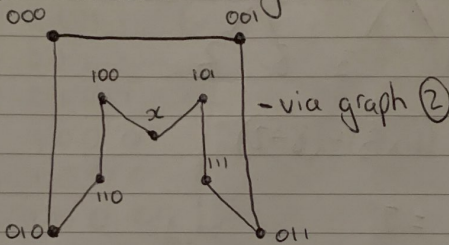 000
001
100
101
x
- via graph ②
111
110
010
011